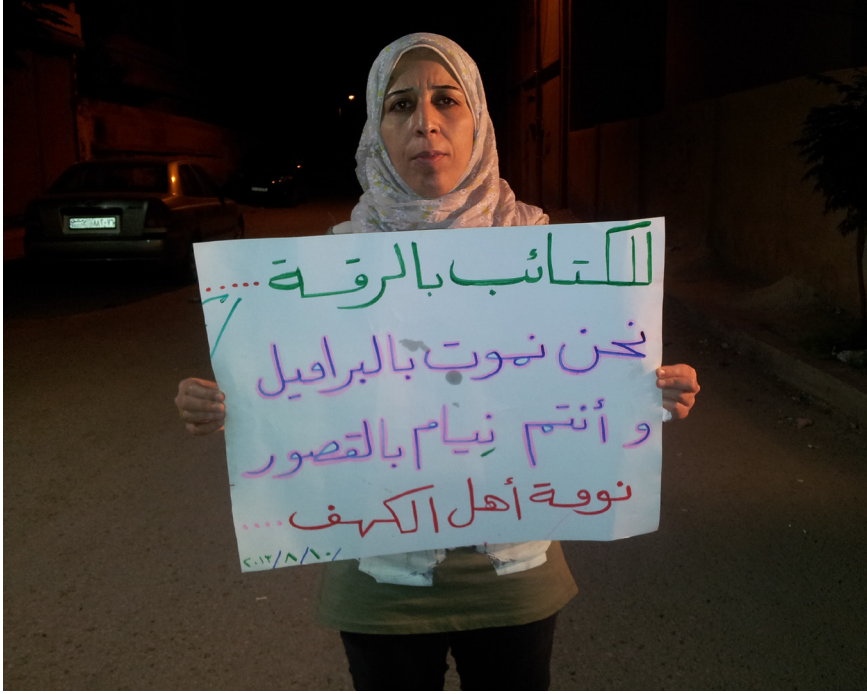 للكتائب بالرقة .....
نحن نموت بالبراميل
و أنتم نِيام بالقصور
نومة أهل الكهف ....
٢٠١٣/٨/١٠/